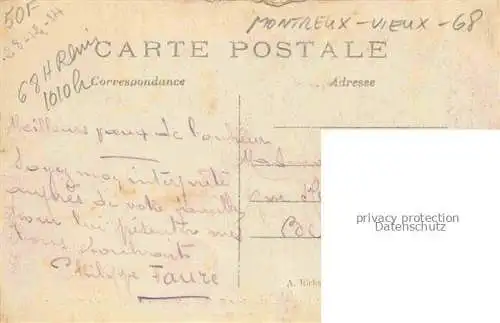 50F
MONTREUX - VIEUX - 68
68 H Rhin
CARTE POSTALE
Correspondance
Adresse
Meilleurs vœux de bonheur
Soyez mon interprète
auprès de votre famille
pour lui présenter mes
bons souhaits
Philippe Faure
privacy protection
Datenschutz